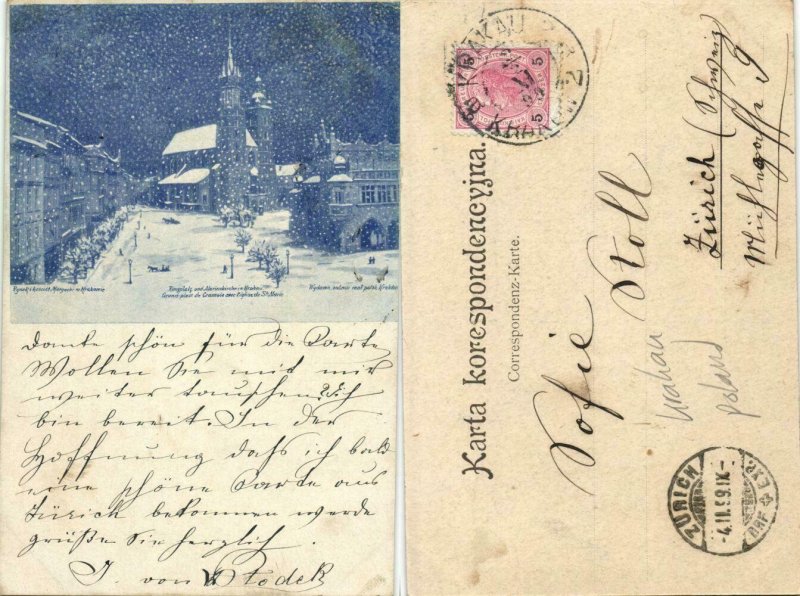 Rynek i kościół Maryacki w Krakowie
Ringplatz und Marienkirche in Krakau
Grand place de Cracovie avec l'église de Ste Marie
Wydawn. salonu mal. polsk. Kraków
Danke schön für die Karte
Wollen Sie mit mir
weiter tauschen? Ich
bin bereit. In der
Hoffnung daß ich bald
eine schöne Karte aus
Zürich bekommen werde
grüße Sie herzlich
J. von Kłodek
KRAKAU
KRAKÓW 2
5 5
5 5
Karta korespondencyjna.
Correspondenz-Karte.
Sofie Stoll
Zürich (Schweiz)
Mühlegasse 9
Krakau
poland
ZÜRICH
-4.II.99.IX-
BRF. EXP.